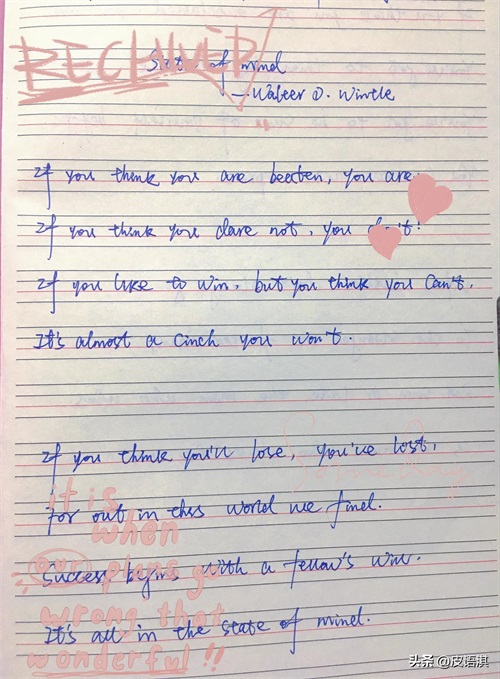 of mind
—Walter D. Wintle
If you think you are beaten, you are.
If you think you dare not, you
If you like to win, but you think you can't,
It's almost a cinch you won't.
If you think you'll lose, you've lost,
For out in this world we find.
Success begins with a fellow's will.
It's all in the state of mind.
it is
when
our plans go
wrong that
wonderful!!
头条 @皮语淇